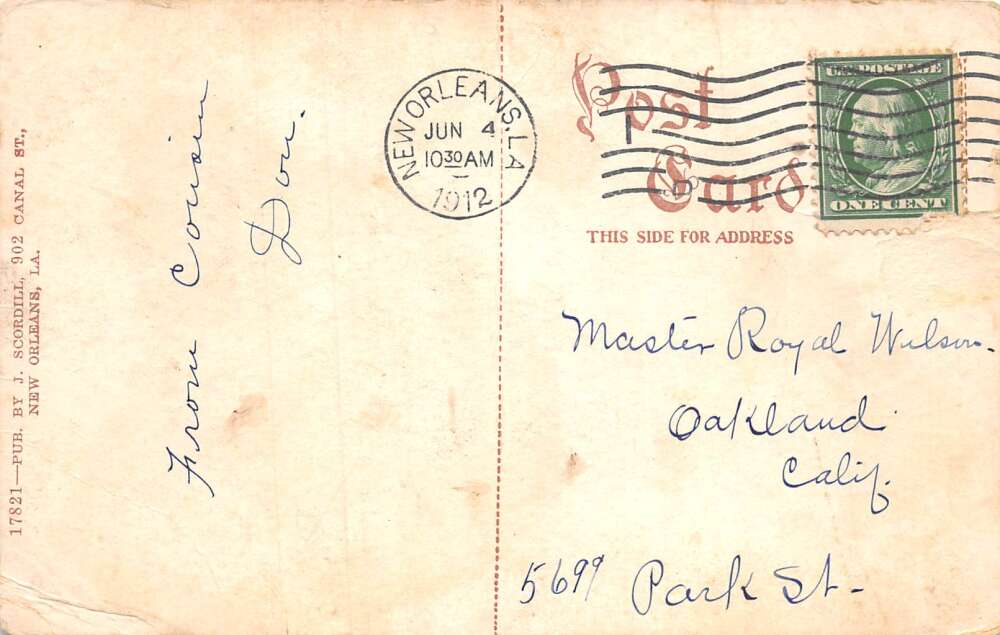 17821—PUB. BY J. SCORDILL, 902 CANAL ST.,
NEW ORLEANS, LA.
From Cousin
Don.
NEW ORLEANS, LA
JUN 4
10 30 AM
1912
Post
Card
THIS SIDE FOR ADDRESS
U.S. POSTAGE
ONE CENT
Master Royal Wilson.
Oakland
Calif.
5699 Park St.